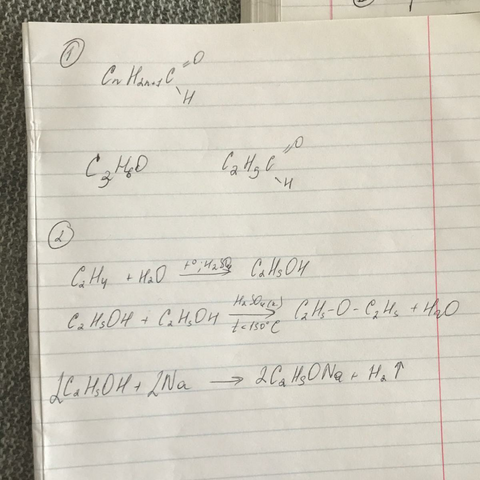 1
CnH2n+1C=O
\H
C3H6O C2H5C=O
\H
2
C2H4 + H2O t°; H2SO4 → C2H5OH
C2H5OH + C2H5OH H2SO4(к) → t<150°C C2H5-O-C2H5 + H2O
2C2H5OH + 2Na → 2C2H5ONa + H2↑